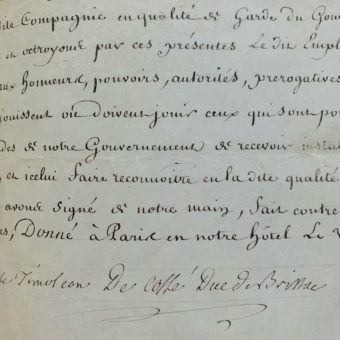 dite Compagnie en qualité de Garde du Gouv
et octroyons par ces présentes Le dit Empl
aux honneurs, pouvoirs, autorités, prerogatives
jouissent ou doivent jouir ceux qui sont po
des de notre Gouvernement de recevoir
et icelui faire reconnoitre en la dite qualité
avons signé de notre main, fait contre
Donné à Paris en notre hôtel Le
de Timoleon De Cossé Duc de Brissac